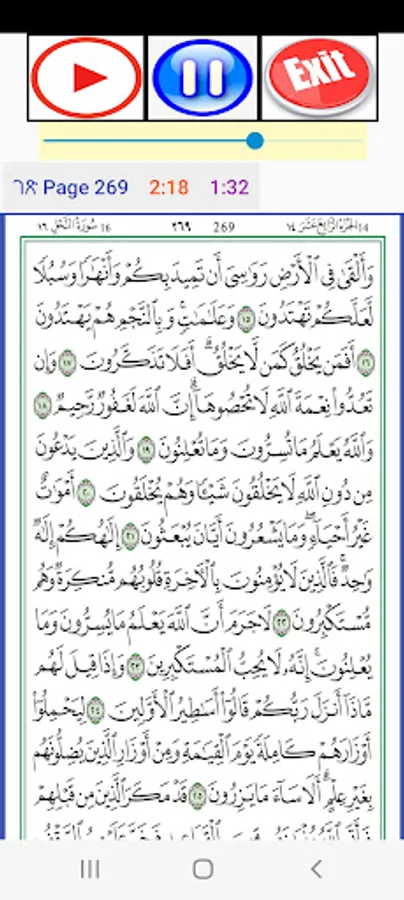 Exit
ገጽ Page 269 2:18 1:32
١٦ سُورَةُ النَّحْلِ 16 ٢٦٩ 269 الجُزءُ الرَّابِعَ عَشَرَ ١٤ 14
وَأَلْقَىٰ فِى ٱلْأَرْضِ رَوَٰسِىَ أَن تَمِيدَ بِكُمْ وَأَنْهَٰرًا وَسُبُلًا
لَّعَلَّكُمْ تَهْتَدُونَ ١٥ وَعَلَٰمَٰتٍ ۚ وَبِٱلنَّجْمِ هُمْ يَهْتَدُونَ
١٦ أَفَمَن يَخْلُقُ كَمَن لَّا يَخْلُقُ ۗ أَفَلَا تَذَكَّرُونَ ١٧ وَإِن
تَعُدُّوا۟ نِعْمَةَ ٱللَّهِ لَا تُحْصُوهَآ ۗ إِنَّ ٱللَّهَ لَغَفُورٌ رَّحِيمٌ ١٨
وَٱللَّهُ يَعْلَمُ مَا تُسِرُّونَ وَمَا تُعْلِنُونَ ١٩ وَٱلَّذِينَ يَدْعُونَ
مِن دُونِ ٱللَّهِ لَا يَخْلُقُونَ شَيْـًٔا وَهُمْ يُخْلَقُونَ ٢٠ أَمْوَٰتٌ
غَيْرُ أَحْيَآءٍ ۖ وَمَا يَشْعُرُونَ أَيَّانَ يُبْعَثُونَ ٢١ إِلَٰهُكُمْ إِلَٰهٌ
وَٰحِدٌ ۚ فَٱلَّذِينَ لَا يُؤْمِنُونَ بِٱلْـَٔاخِرَةِ قُلُوبُهُم مُّنكِرَةٌ وَهُم
مُّسْتَكْبِرُونَ ٢٢ لَا جَرَمَ أَنَّ ٱللَّهَ يَعْلَمُ مَا يُسِرُّونَ وَمَا
يُعْلِنُونَ ۚ إِنَّهُۥ لَا يُحِبُّ ٱلْمُسْتَكْبِرِينَ ٢٣ وَإِذَا قِيلَ لَهُم
مَّاذَآ أَنزَلَ رَبُّكُمْ ۙ قَالُوٓا۟ أَسَٰطِيرُ ٱلْأَوَّلِينَ ٢٤ لِيَحْمِلُوٓا۟
أَوْزَارَهُمْ كَامِلَةً يَوْمَ ٱلْقِيَٰمَةِ ۙ وَمِنْ أَوْزَارِ ٱلَّذِينَ يُضِلُّونَهُم
بِغَيْرِ عِلْمٍ ۗ أَلَا سَآءَ مَا يَزِرُونَ ٢٥ قَدْ مَكَرَ ٱلَّذِينَ مِن قَبْلِهِمْ